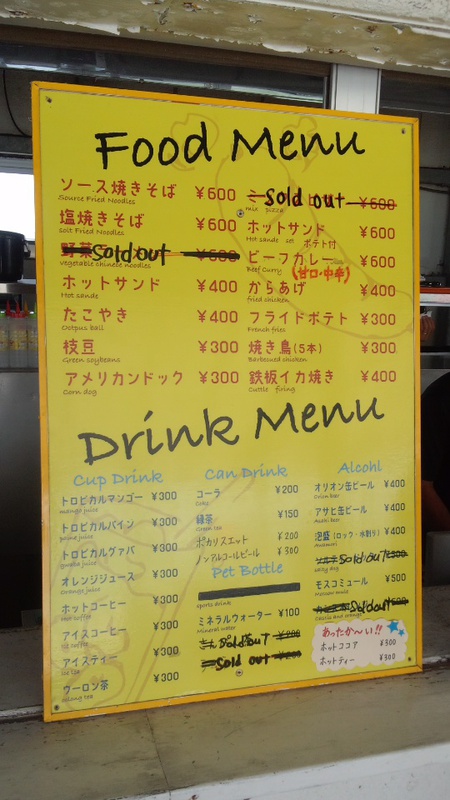 Food Menu
ソース焼きそば ¥600
Sourse Fried Noodles
塩焼きそば ¥600
solt Fried Noodles
野菜 Sold out
vegetable chinece noodles
ホットサンド ¥400
Hot sande
たこやき ¥400
Octpus ball
枝豆 ¥300
Green soybeans
アメリカンドック ¥300
Corn dog
Sold out ¥600
mix pizza
ホットサンド ¥600
Hot sande set ポテト付
ビーフカレー ¥600
Beef Curry (甘口・中辛)
からあげ ¥400
fried chicken
フライドポテト ¥300
French fries
焼き鳥(5本) ¥300
Barbecued chicken
鉄板イカ焼き ¥400
Cuttle firing
Drink Menu
Cup Drink
トロピカルマンゴー ¥300
mango juice
トロピカルパイン ¥300
トロピカルグァバ ¥300
オレンジジュース ¥300
Orange juice
ホットコーヒー ¥300
Hot coffee
アイスコーヒー ¥300
Ice coffee
アイスティー ¥300
Ice tea
ウーロン茶 ¥300
Can Drink
コーラ ¥200
緑茶 ¥150
Green tea
ポカリスエット ¥200
ノンアルコールビール ¥300
Pet Bottle
sports drink
ミネラルウォーター ¥100
Mineral water
Sold out
Sold out
Alcohl
オリオン缶ビール ¥400
Orion beer
アサヒ缶ビール ¥400
Asahi beer
泡盛(ロック・水割り) ¥400
Awamori
Sold out
salty dog
モスコミュール ¥500
Moscow mule
Sold out
Cassis and orange
あったか～い!!
ホットココア ¥300
ホットティー ¥300